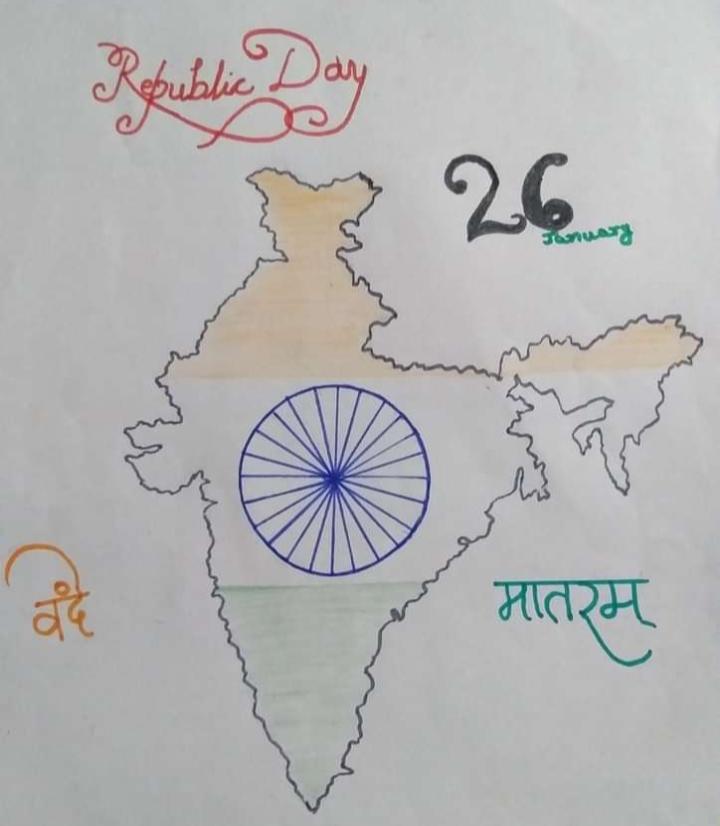 Republic Day
26
January
वंदे
मातरम्